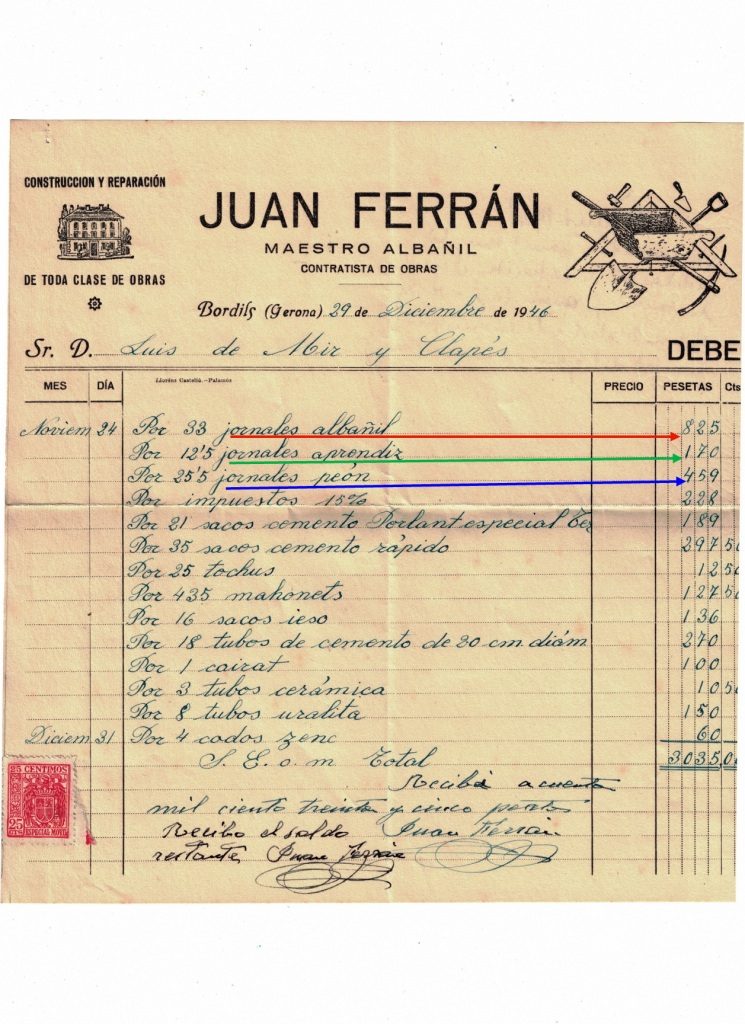 CONSTRUCCION Y REPARACIÓN
DE TODA CLASE DE OBRAS
JUAN FERRÁN
MAESTRO ALBAÑIL
CONTRATISTA DE OBRAS
Bordils (Gerona) 29 de Diciembre de 1946
Sr. D. Luis de Mir y Clapés DEBE
MES DÍA Lloréns Castelló.-Palamós PRECIO PESETAS Cts
Noviem 24 Por 33 jornales albañil 825
Por 12'5 jornales aprendiz 170
Por 25'5 jornales peón 459
Por impuestos 15% 228
Por 21 sacos cemento Porlant especial 189
Por 35 sacos cemento rápido 297 50
Por 25 tochus 12 50
Por 435 mahonets 127 50
Por 16 sacos ieso 136
Por 18 tubos de cemento de 30 cm diám 270
Por 1 cairat 100
Por 3 tubos cerámica 10 50
Por 8 tubos uralita 150
Diciem 31 Por 4 codos zenc 60
S. E. o. m Total 3035,00
Recibi a cuenta
mil ciento treinta y cinco pesetas
Recibo el saldo Juan Ferrán
restante Juan Ferrán
25 CENTIMOS
25 CTS
ESPECIAL MOVIL